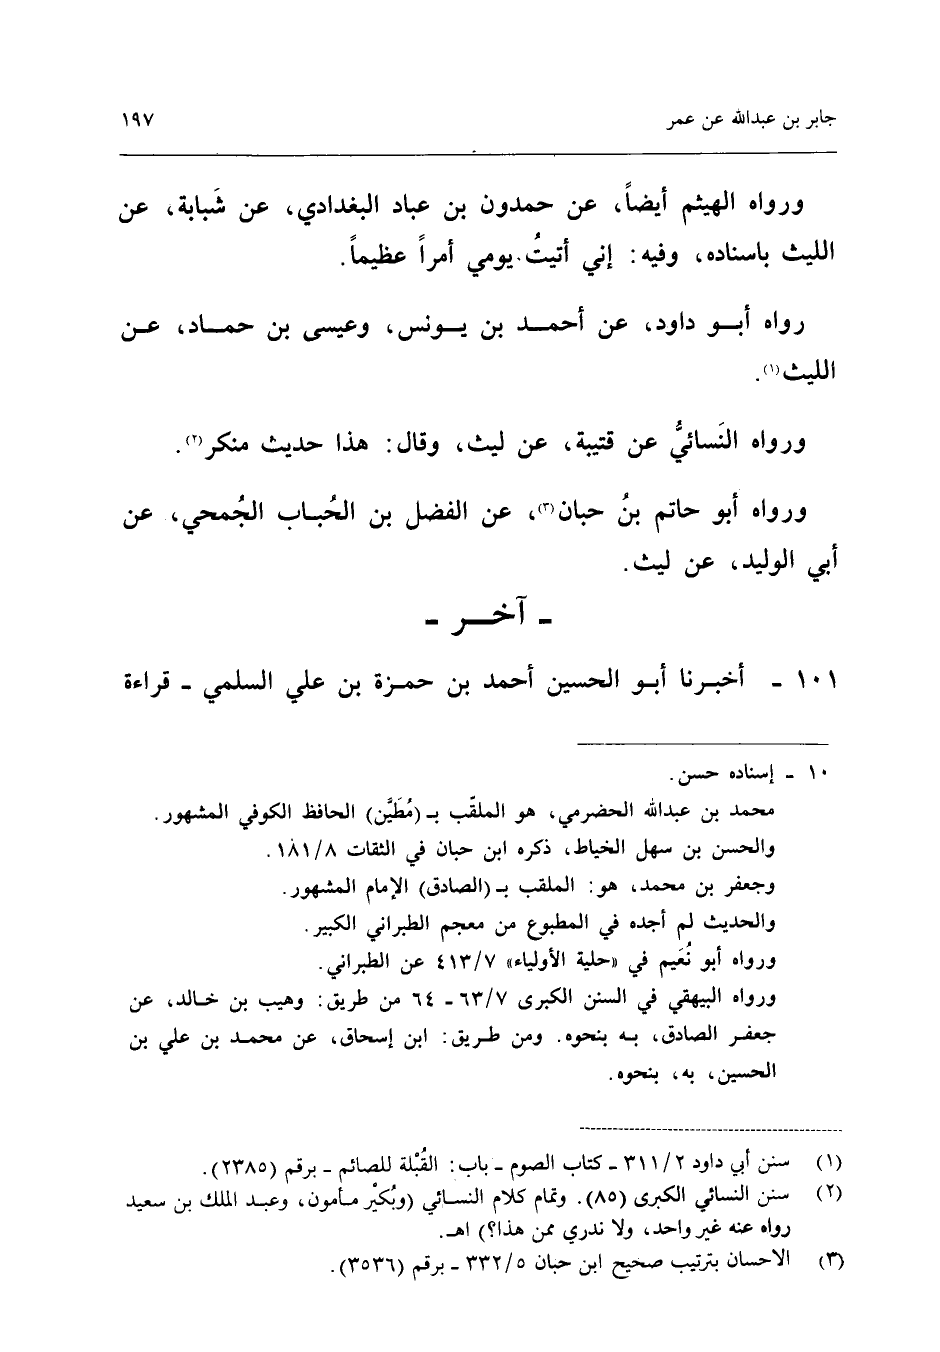 جابر بن عبدالله عن عمر ١٩٧
ورواه الهيثم أيضاً، عن حمدون بن عباد البغدادي، عن شَبابة، عن
الليث باسناده، وفيه: إني أتيتُ يومي أمراً عظيماً.
رواه أبــو داود، عن أحمــد بن يــونس، وعيسى بن حمــاد، عـن
الليث(١).
ورواه النَسائيُّ عن قتيبة، عن ليث، وقال: هذا حديث منكر(٢).
ورواه أبو حاتم بنُ حبان(٣)، عن الفضل بن الحُباب الجُمحي، عن
أبي الوليد، عن ليث.
ـ آخــر ـ
١٠١ ـ أخبـرنا أبـو الحسين أحمد بن حمـزة بن علي السلمي ـ قراءة
١٠ ـ إسناده حسن.
محمد بن عبدالله الحضرمي، هو الملقّب بـ (مُطَيَّن) الحافظ الكوفي المشهور.
والحسن بن سهل الخياط، ذكره ابن حبان في الثقات ١٨١/٨.
وجعفر بن محمد، هو: الملقب بـ (الصادق) الإمام المشهور.
والحديث لم أجده في المطبوع من معجم الطبراني الكبير.
ورواه أبو نُعَيم في «حلية الأولياء» ٤١٣/٧ عن الطبراني.
ورواه البيهقي في السنن الكبرى ٦٣/٧ ـ ٦٤ من طريق: وهيب بن خـالد، عن
جعفـر الصادق، بـه بنحوه. ومن طـريق: ابن إسحاق، عن محمـد بن علي بن
الحسين، به، بنحوه.
(١) سنن أبي داود ٣١١/٢ ـ كتاب الصوم ـ باب: القُبْلة للصائم ـ برقم (٢٣٨٥).
(٢) سنن النسائي الكبرى (٨٥). وتمام كلام النسائي (وبُكيْر مـأمون، وعبـد الملك بن سعيد
رواه عنه غير واحد، ولا ندري ممن هذا؟) اهـ.
(٣) الاحسان بترتيب صحيح ابن حبان ٣٣٢/٥ ـ برقم (٣٥٣٦).